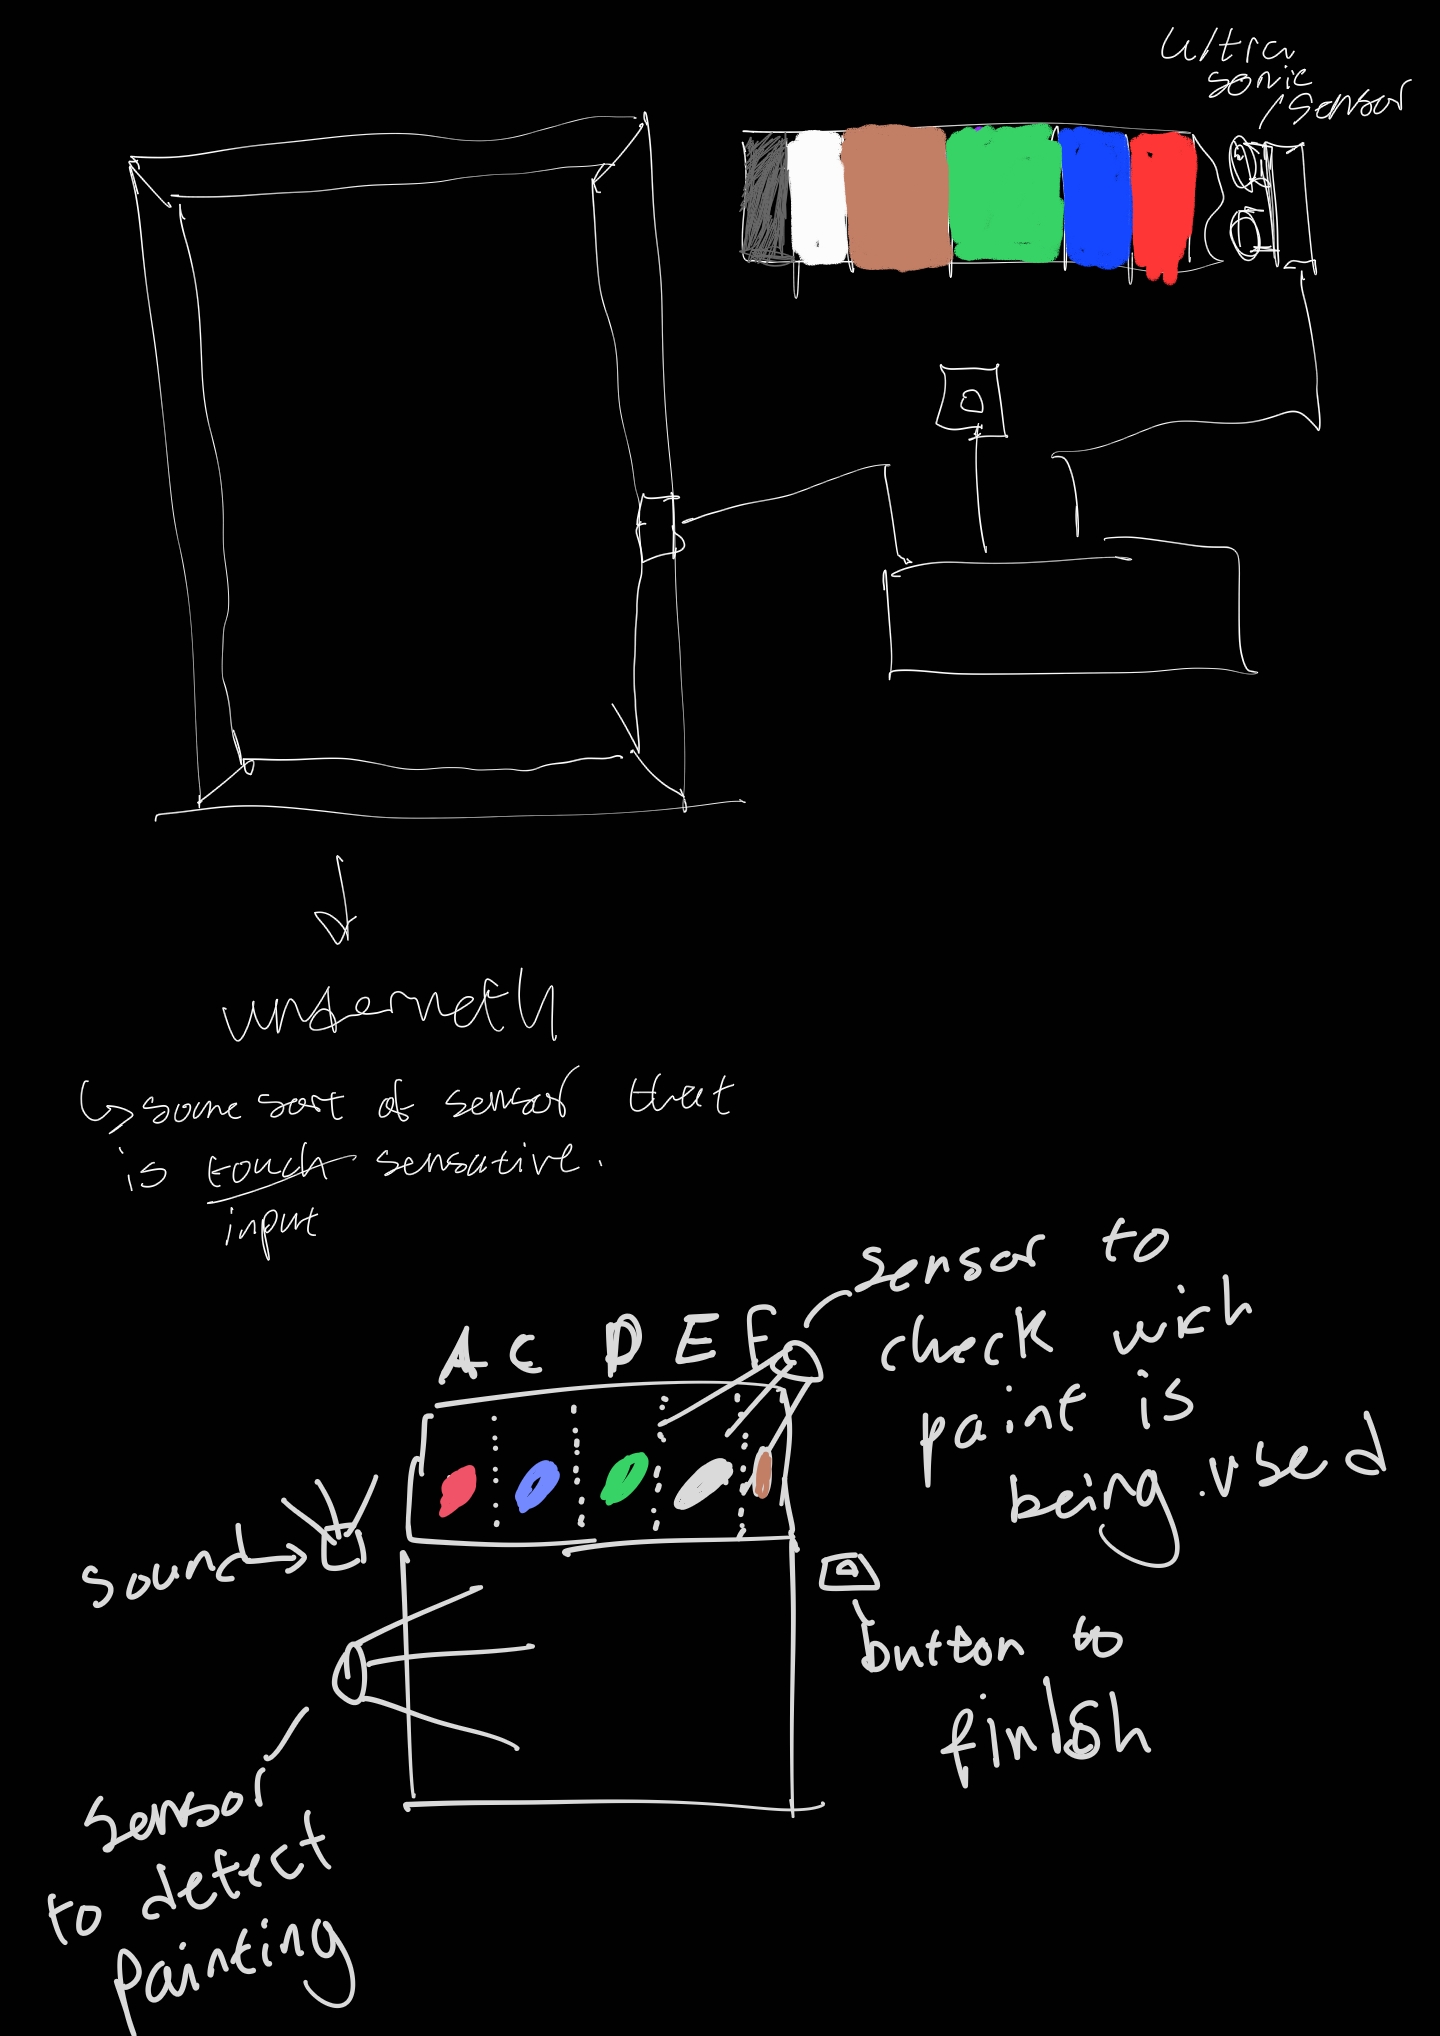 ultra
sonic
sensor
underneth
some sort of sensor that
is touch sensative.
input
sensor to
check wich
paint is
being used
A C D E F
sound
button to
finish
sensor
to detect
painting